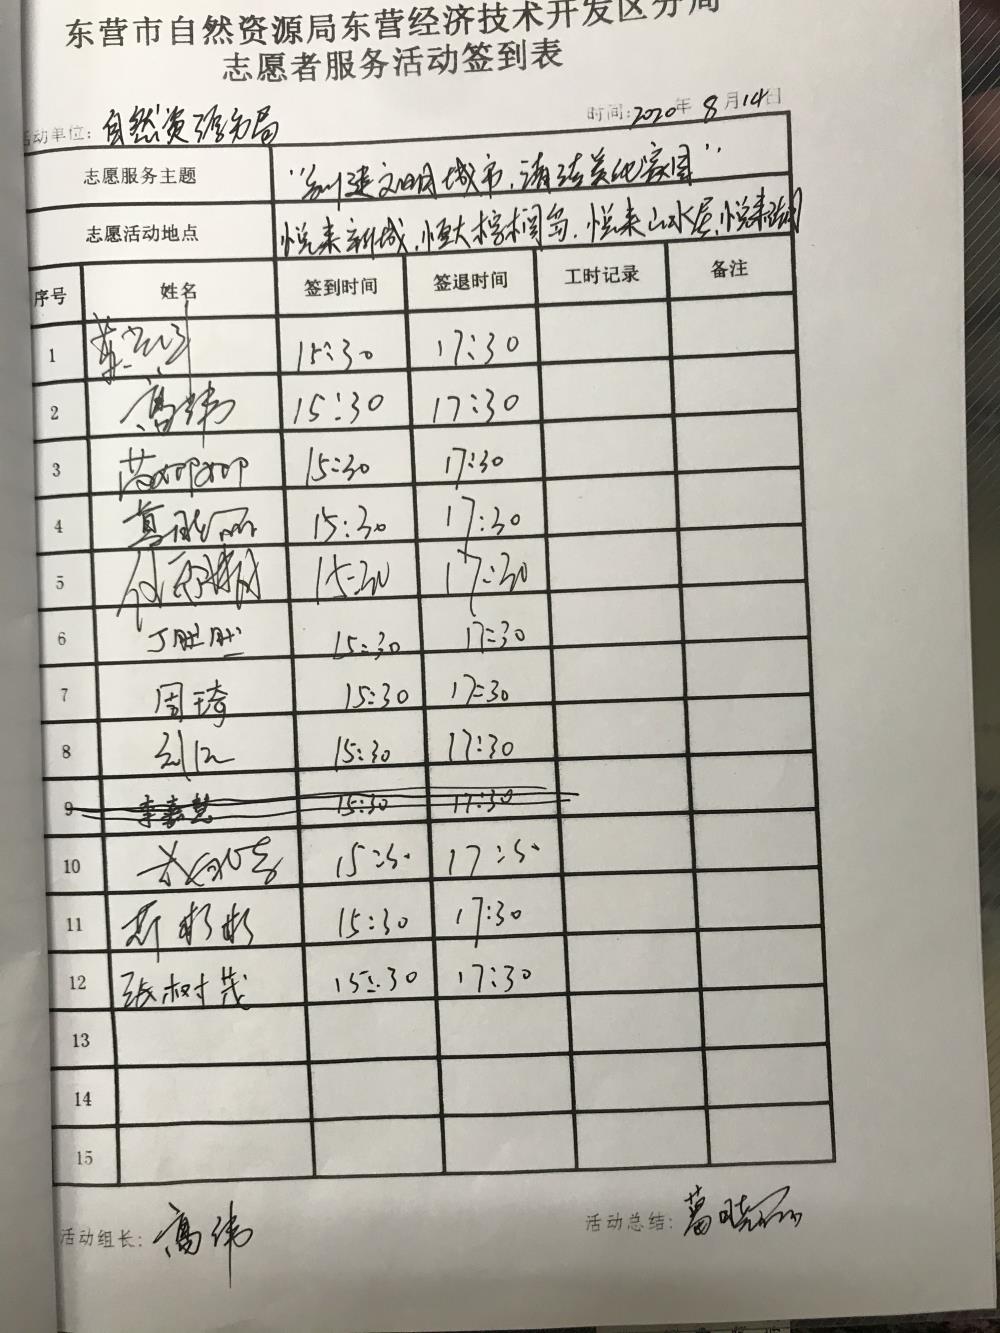 东营市自然资源局东营经济技术开发区分局
志愿者服务活动签到表
活动单位: 自然资源分局 时间: 2020年 8月14日
志愿服务主题 "创建文明城市,清洁美化家园"
志愿活动地点 悦来新城,恒大棕榈岛,悦来山水居,悦来
序号 姓名 签到时间 签退时间 工时记录 备注
1 15:30 17:30
2 高伟 15:30 17:30
3 15:30 17:30
4 葛晓丽 15:30 17:30
5 15:30 17:30
6 丁胜胜 15:30 17:30
7 周琦 15:30 17:30
8 刘江 15:30 17:30
9 李嘉慧 15:30 17:30
10 15:30 17:30
11 靳彬彬 15:30 17:30
12 张树茂 15:30 17:30
13
14
15
活动组长: 高伟 活动总结: 葛晓丽